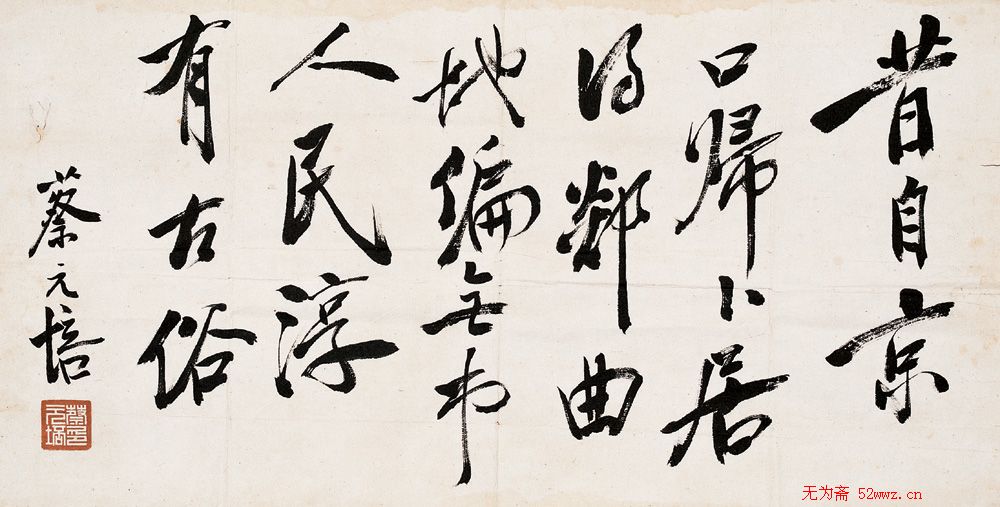 昔自京
口歸卜居
得鄰曲
地偏無市
人民淳
有古俗
蔡元培
蔡印
元培
无为斋 52wwz.cn